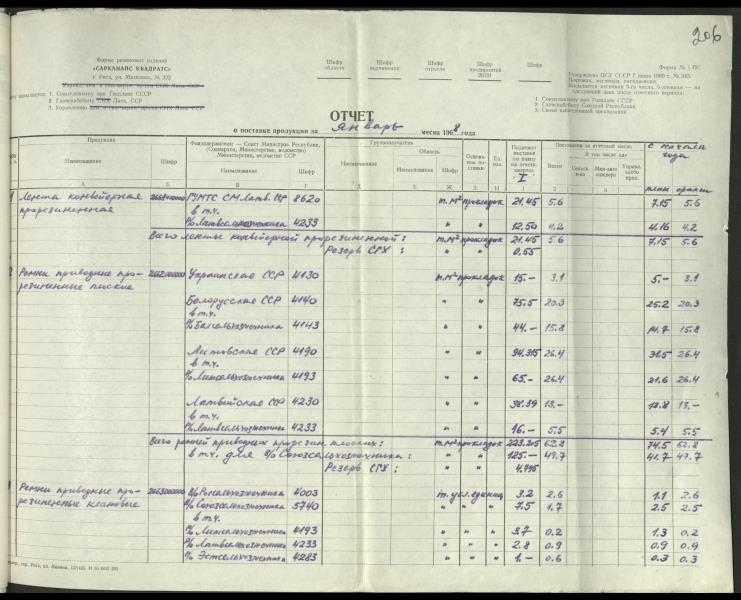 206
Форма № 1-ПС
Фирма резиновых изделий
«САРКАНАЙС КВАДРАТС»
г. Рига, ул. Маскавас, № 322
Шифр области
Шифр назначения
Шифр отрасли
Шифр предприятий 20291
Шифр
Утверждена ЦСУ СССР 7 июня 1960 г. № 343.
Почтовая, месячная, пятидневная.
1. Союзглавхиму при Госплане СССР
2. Главснабсбыту Лата. ССР
3. Управлению
1. Союзглавхиму при Госплане СССР
2. Главснабсбыту Союзной Республики
3. Своей вышестоящей организации
ОТЧЕТ
о поставке продукции за январь месяц 1968 года
Продукция
Фондодержатели — Совет Министров Республики, (Совнархоз, Министерство, ведомство) Министерство, ведомство ССР
Грузополучатель
Область
Поставлено за отчетный месяц
с начала года
Наименование Шифр Наименование Шифр Наименование Наименование Шифр Всего
В том числе для
план факт
А Б В Г Д Е Ж
1 Лента конвейерная ГУМТС СМ Латв. ССР 8620 т.м² прокладок 21.45 5.6 7.15 5.6
прорезиненная в т.ч.
% Латвсельхозтехника 4233 " " 12.50 4.2 4.16 4.2
Всего ленты конвейерной прорезиненной: т.м² прокладок 21.45 5.6 7.15 5.6
Резерв СГХ : " " 0.55
2 Ремни приводные про- Украинская ССР 4130 т.м² прокладок 15.- 3.1 5.- 3.1
резиненные плоские
Белорусская ССР 4140 " " 75.5 20.3 25.2 20.3
в т.ч.
% Белсельхозтехника 4143 " " 44.- 15.8 14.7 15.8
Литовская ССР 4190 " " 94.315 26.4 31.5 26.4
в т.ч.
% Литсельхозтехника 4193 " " 65.- 26.4 21.6 26.4
Латвийская ССР 4230 " " 38.39 13.- 12.8 13.-
в т.ч.
% Латвсельхозтехника 4233 " " 16.- 5.5 5.4 5.5
Всего ремней приводных прорезин. плоских: т.м² прокладок 223.205 62.8 74.5 62.8
в т.ч. для % Союзсельхозтехника: " " 125.- 47.7 41.7 47.7
Резерв СГХ : " " 4.795
3 Ремни приводные про- % Россельхозтехника 4003 т.усл.единиц 3.2 2.6 1.1 2.6
резиненные клиновые % Союзсельхозтехника 5740 " " " 7.5 1.7 2.5 2.5
в т.ч.
% Литсельхозтехника 4193 " " " 3.7 0.2 1.3 0.2
% Латвсельхозтехника 4233 " " " 2.8 0.9 0.9 0.9
% Эстсельхозтехника 4283 " " " 1.- 0.6 0.3 0.3